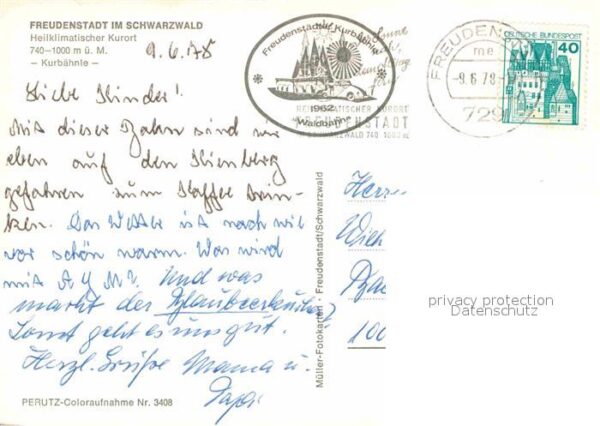 FREUDENSTADT IM SCHWARZWALD
Heilklimatischer Kurort
740–1000 m ü. M.
– Kurbähnle –
9.6.78
Liebe Kinder!
Mit dieser Bahn sind wir
eben auf den Kienberg
gefahren zum Kaffee trin-
ken. Das Wetter ist nach wie
vor schön warm. Was wird
mit
Und was
macht der
Sonst geht es uns gut.
Herzl. Grüße Mama u.
Papi
PERUTZ-Coloraufnahme Nr. 3408
Müller-Fotokarten Freudenstadt/Schwarzwald
Freudenstädter Kurbähnle
1962
"Waldbahn"
HEILKLIMATISCHER KURORT
FREUDENSTADT
SCHWARZWALD 740 1000 M
FREUDENST
mc
-9.6.78
729
DEUTSCHE BUNDESPOST
40
privacy protection
Datenschutz